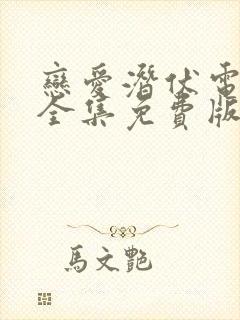 戀愛潛伏電
全集免費版
馬文艷